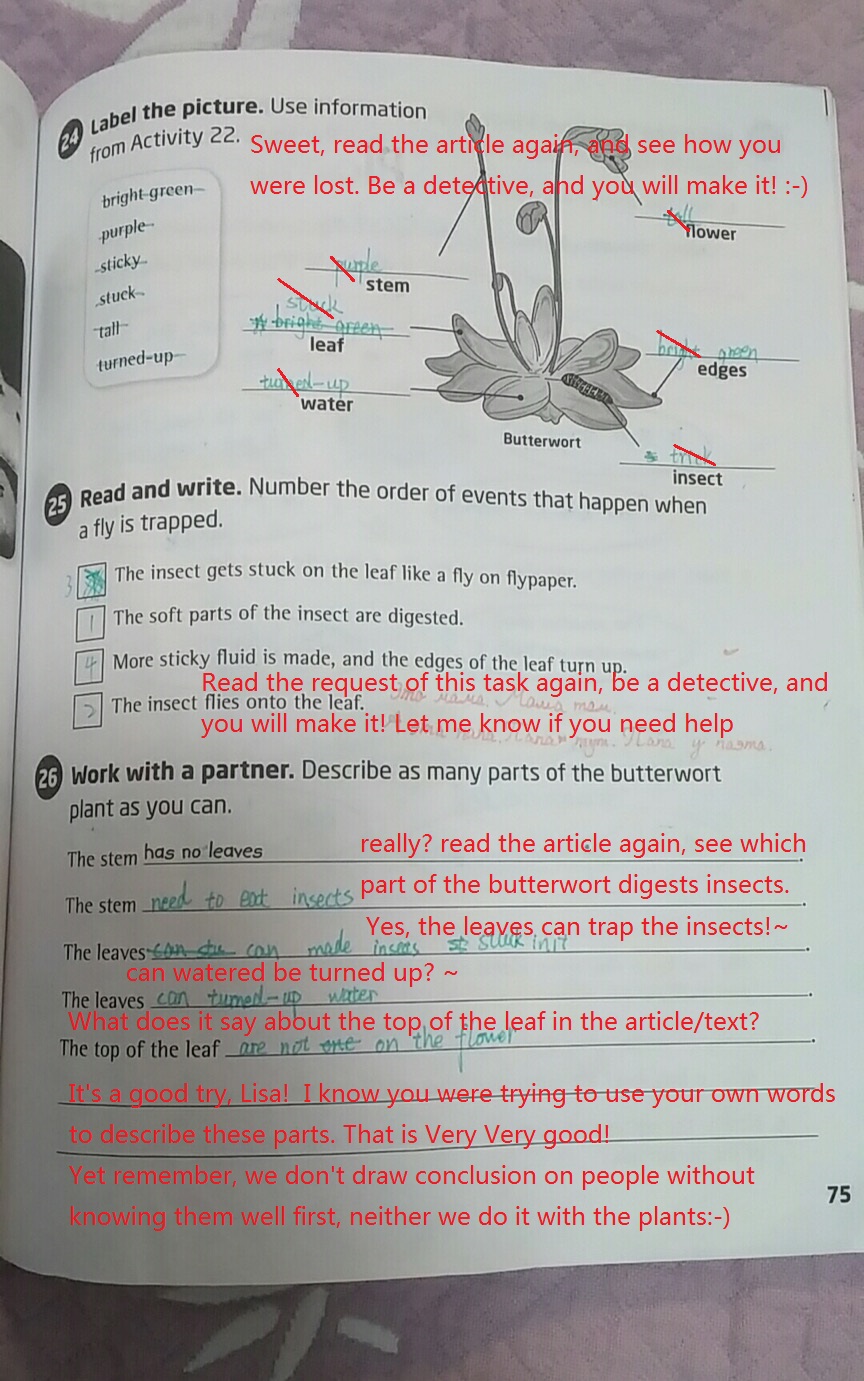 24 Label the picture. Use information
from Activity 22.
Sweet, read the article again, and see how you
were lost. Be a detective, and you will make it! :-)
bright green
purple
sticky
stuck
tall
turned-up
tall
flower
purple
stem
stuck
bright green
leaf
bright green
edges
turned-up
water
Butterwort
trick
insect
25 Read and write. Number the order of events that happen when
a fly is trapped.
3 The insect gets stuck on the leaf like a fly on flypaper.
1 The soft parts of the insect are digested.
4 More sticky fluid is made, and the edges of the leaf turn up.
2 The insect flies onto the leaf.
Read the request of this task again, be a detective, and
you will make it! Let me know if you need help
Это мама. Мама там.
Папа тут. Папа у
26 Work with a partner. Describe as many parts of the butterwort
plant as you can.
The stem has no leaves.
really? read the article again, see which
part of the butterwort digests insects.
The stem need to eat insects.
Yes, the leaves can trap the insects!~
The leaves can stu can made insects st stuck in it.
can watered be turned up? ~
The leaves can turned-up water.
What does it say about the top of the leaf in the article/text?
The top of the leaf are not one on the flower.
It's a good try, Lisa! I know you were trying to use your own words
to describe these parts. That is Very Very good!
Yet remember, we don't draw conclusion on people without
knowing them well first, neither we do it with the plants:-)
75